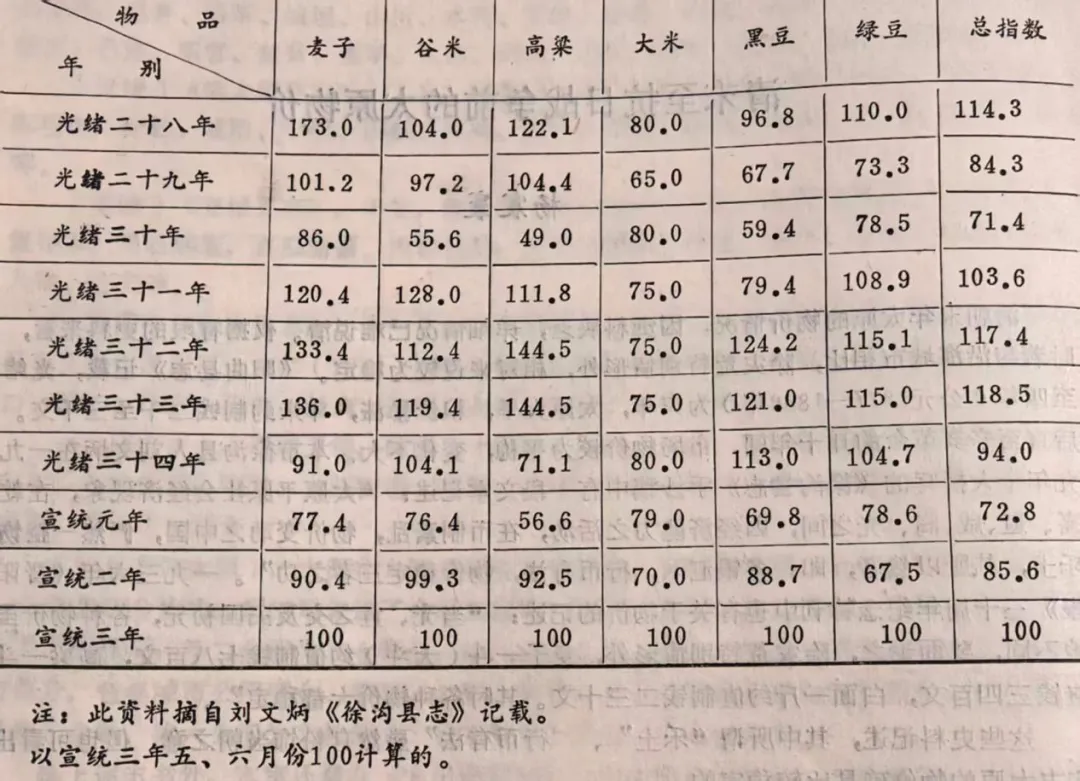 物品
年别 麦子 谷米 高粱 大米 黑豆 绿豆 总指数
光绪二十八年 173.0 104.0 122.1 80.0 96.8 110.0 114.3
光绪二十九年 101.2 97.2 104.4 65.0 67.7 73.3 84.3
光绪三十年 86.0 55.6 49.0 80.0 59.4 78.5 71.4
光绪三十一年 120.4 128.0 111.8 75.0 79.4 108.9 103.6
光绪三十二年 133.4 112.4 144.5 75.0 124.2 115.1 117.4
光绪三十三年 136.0 119.4 144.5 75.0 121.0 115.0 118.5
光绪三十四年 91.0 104.1 71.1 80.0 113.0 104.7 94.0
宣统元年 77.4 76.4 56.6 79.0 69.8 78.6 72.8
宣统二年 90.4 99.3 92.5 70.0 88.7 67.5 85.6
宣统三年 100 100 100 100 100 100 100
注：此资料摘自刘文炳《徐沟县志》记载。
以宣统三年五、六月份100计算的。